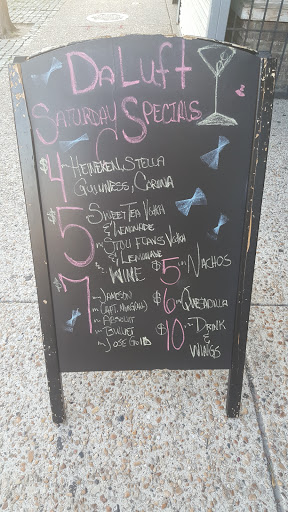 Da Luft
Saturday Specials
$4 Heineken, Stella
Guinness, Corona
$5 Sweet Tea Vodka
& Lemonade
Stoli Flavs Vodka
& Lemonade
Wine
$5 Nachos
$7 Jameson
Capt. Morgan
Absolut
Bullet
Jose Gold
$6 Quesadilla
$10 Drink
& Wings